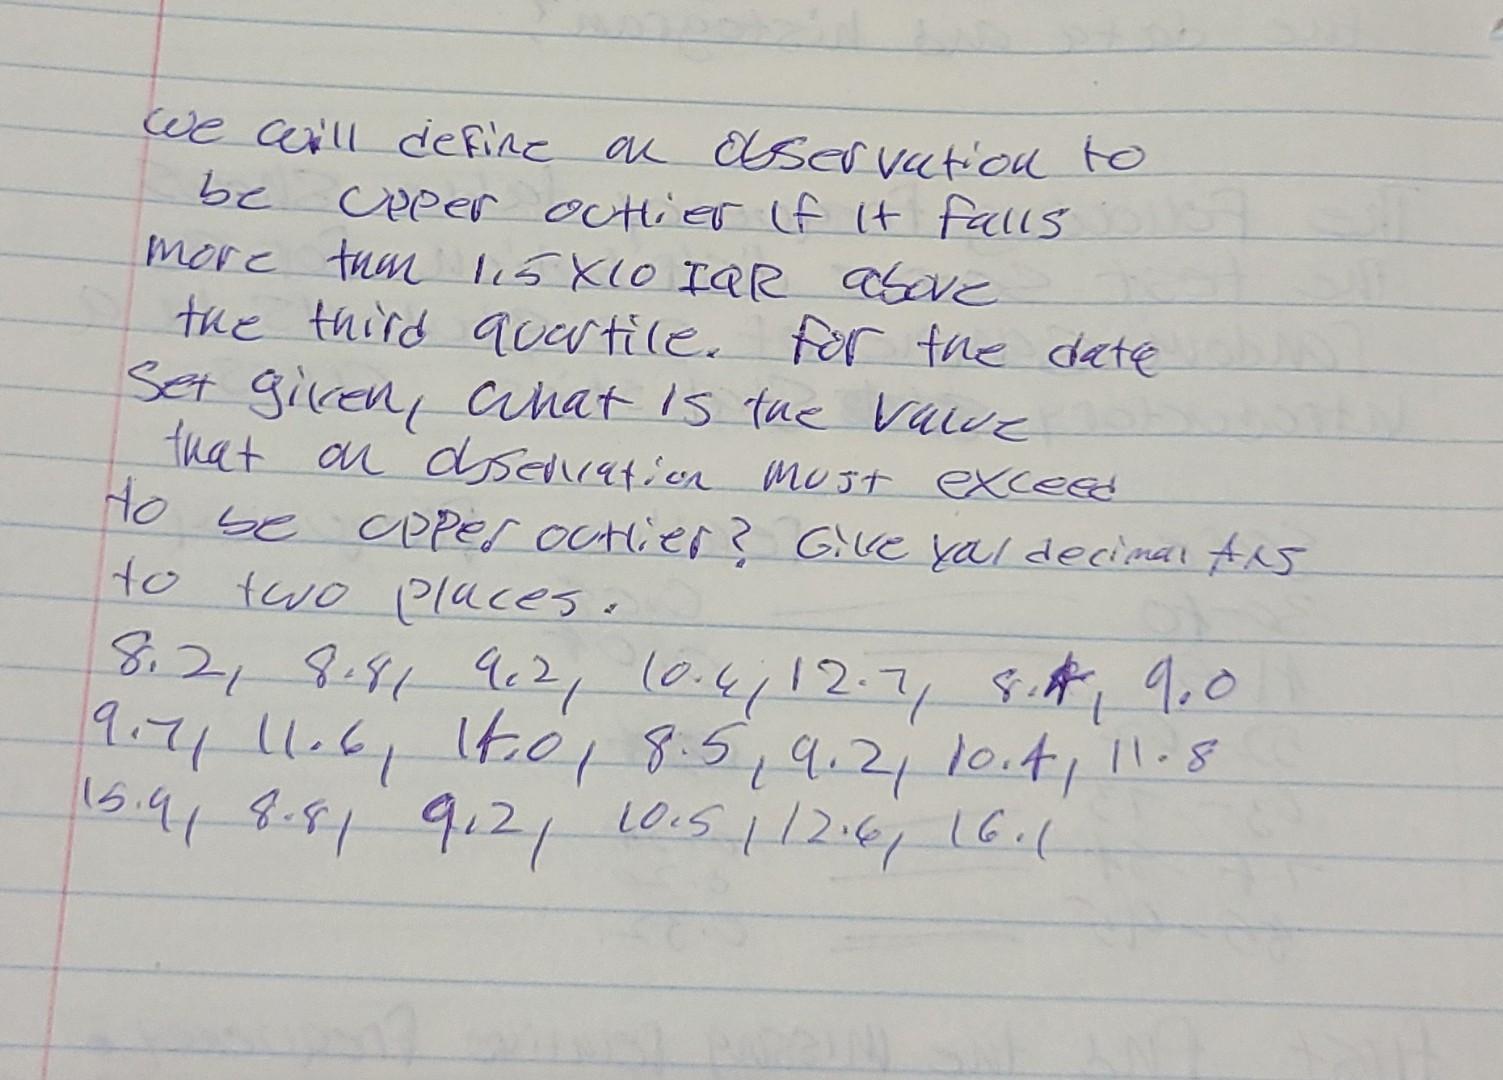 we will define an observation to
be upper outlier if it falls
more than 1.5 X10 IQR above
the third quartile. For the date
Set given, what is the value
that an observation must exceed
to be upper outlier? Give your decimal Ans
to two places.
8.2, 8.8, 9.2, 10.4, 12.7, 8.4, 9.0
9.7, 11.6, 14.0, 8.5, 9.2, 10.4, 11.8
15.9, 8.8, 9.2, 10.5, 12.6, 16.1